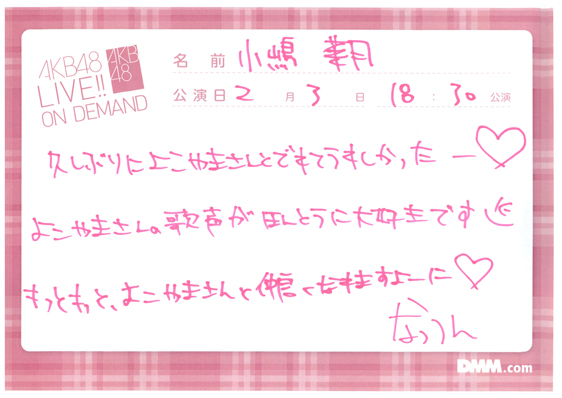 AKB48
LIVE!!
ON DEMAND
AKB
48
名前 小嶋 菜月
公演日 2 月 3 日 18 : 30 公演
久しぶりによこやまさんとでれてうれしかったー♡
よこやまさんの歌声がほんとうに大好きです
もっともっと、よこやまさんと仲良くなれますよーに♡
なっつん
DMM.com